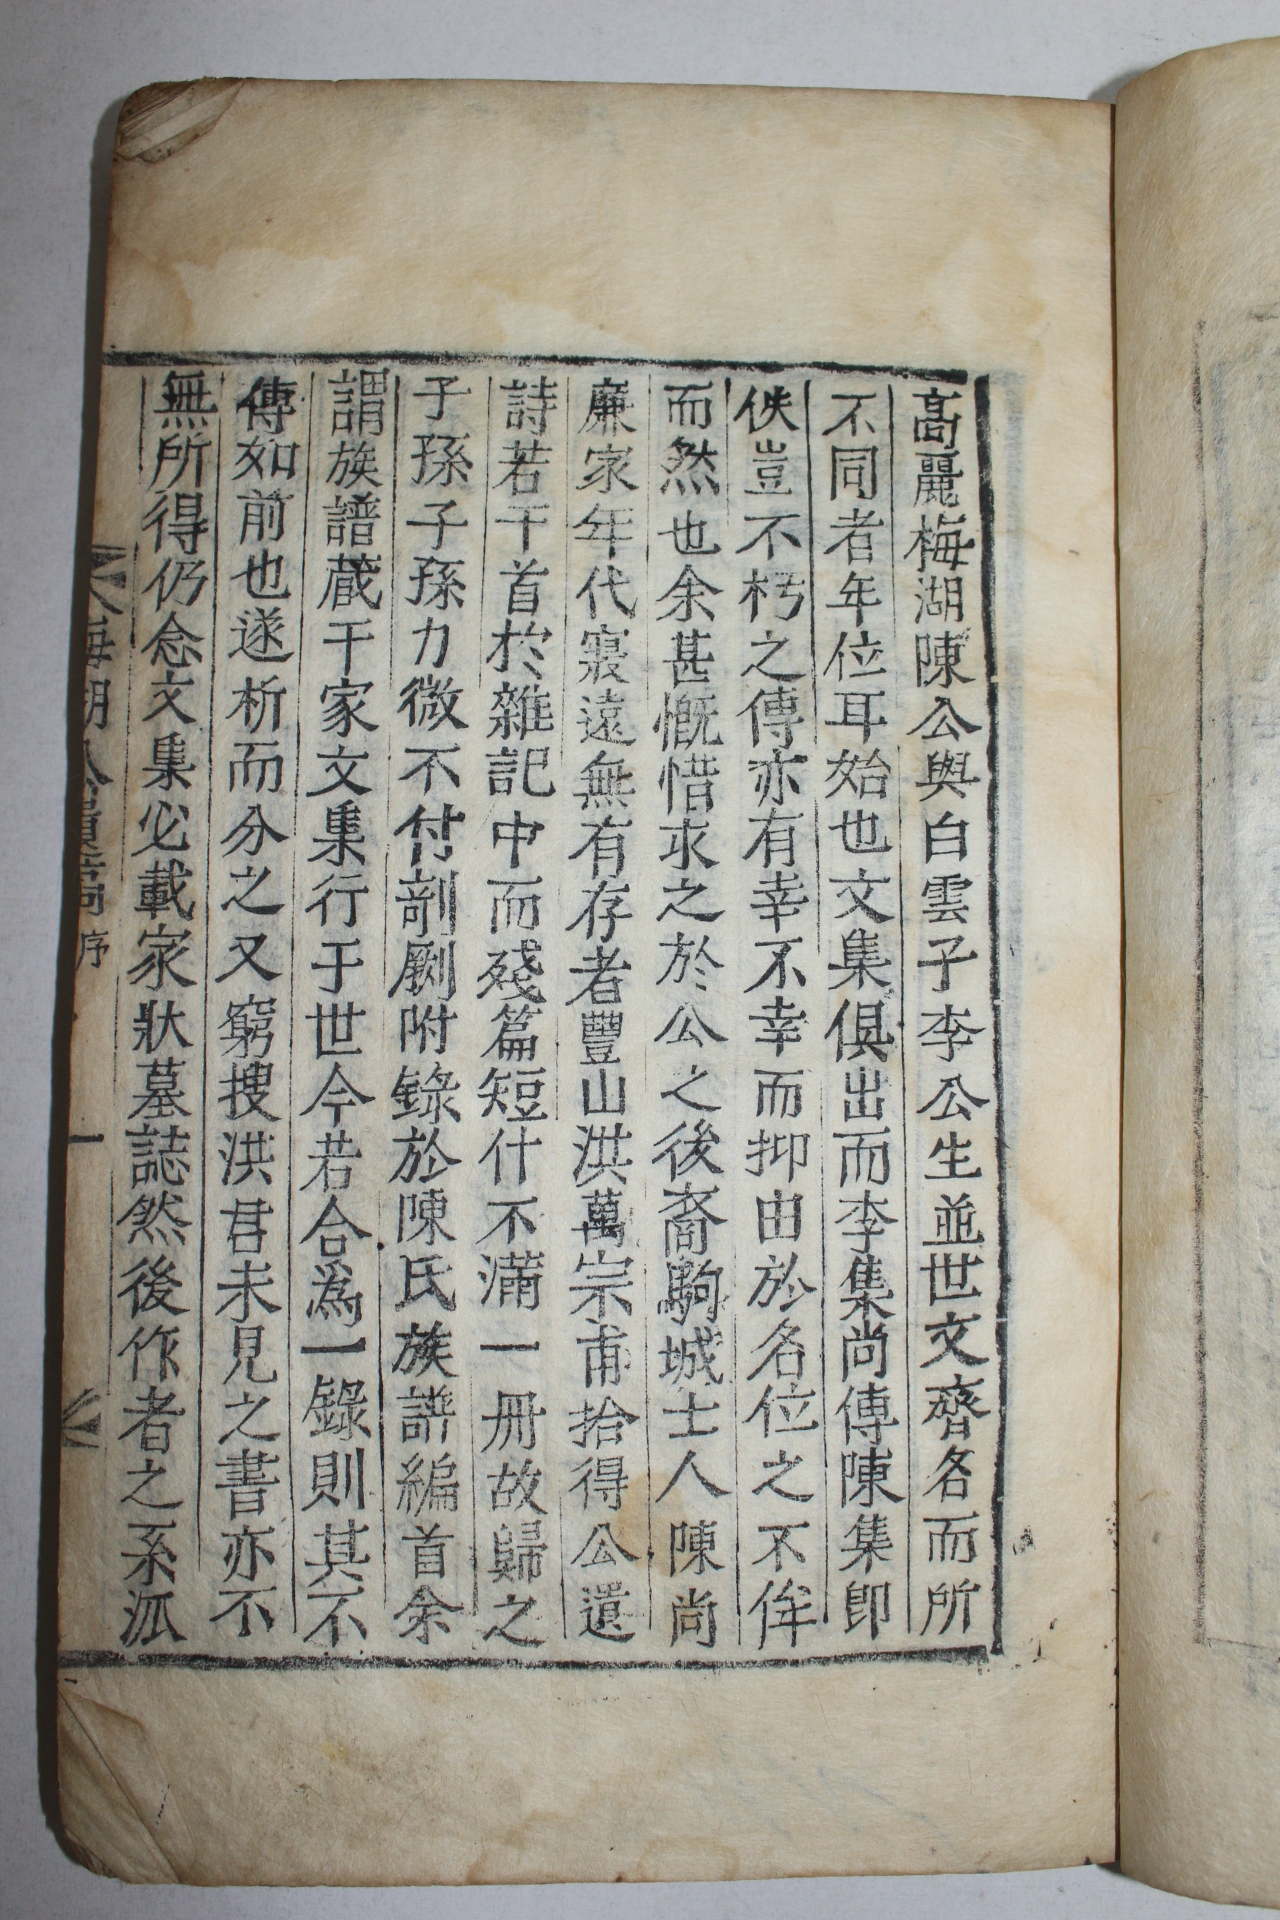 高麗梅湖陳公與白雲子李公生並世文齊名而所
不同者年位耳始也文集俱出而李集尚傳陳集卽
佚豈不朽之傳亦有幸不幸而抑由於名位之不侔
而然也余甚慨惜求之於公之後裔駒城士人陳尚
廉家年代寢遠無有存者豐山洪萬宗甫拾得公遺
詩若干首於雜記中而殘篇短什不滿一冊故歸之
子孫子孫力微不付剞劂附錄於陳氏族譜編首余
謂族譜蔵于家文集行于世今若合爲一錄則其不
傳如前也遂析而分之又窮搜洪君未見之書亦不
無所得仍念文集必載家狀墓誌然後作者之系派
梅湖公遺稿 序 一